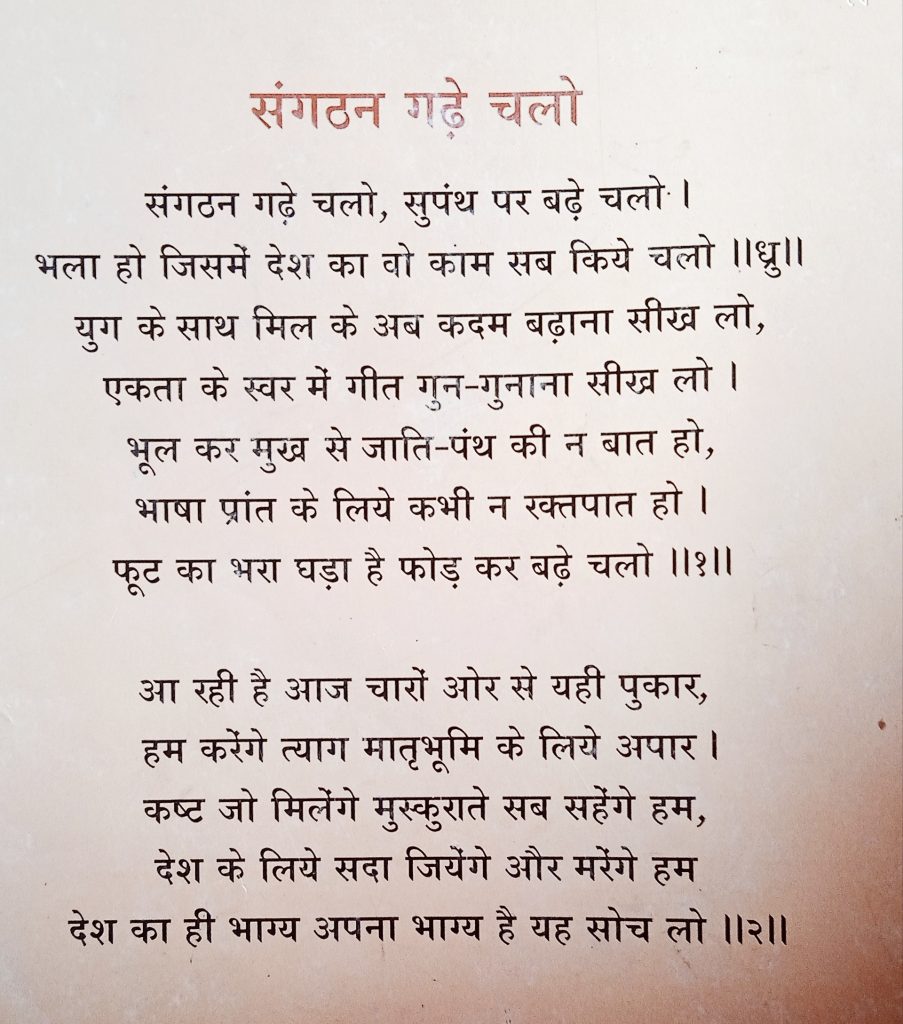 संगठन गढ़े चलो
संगठन गढ़े चलो, सुपंथ पर बढ़े चलो ।
भला हो जिसमें देश का वो काम सब किये चलो ॥ध्रु॥
युग के साथ मिल के अब कदम बढ़ाना सीख लो,
एकता के स्वर में गीत गुन-गुनाना सीख लो ।
भूल कर मुख से जाति-पंथ की न बात हो,
भाषा प्रांत के लिये कभी न रक्तपात हो ।
फूट का भरा घड़ा है फोड़ कर बढ़े चलो ॥१॥
आ रही है आज चारों ओर से यही पुकार,
हम करेंगे त्याग मातृभूमि के लिये अपार ।
कष्ट जो मिलेंगे मुस्कुराते सब सहेंगे हम,
देश के लिये सदा जियेंगे और मरेंगे हम
देश का ही भाग्य अपना भाग्य है यह सोच लो ॥२॥